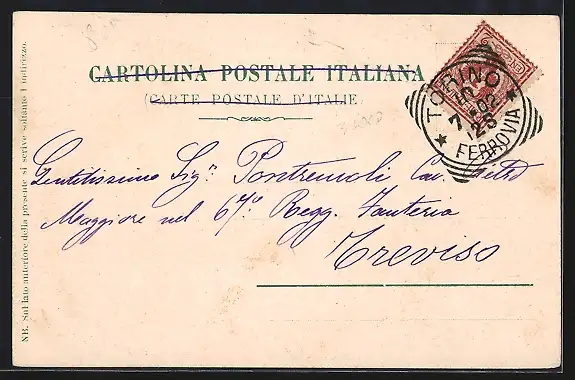 CARTOLINA POSTALE ITALIANA
(CARTE POSTALE D'ITALIE)
TORINO
7 02
12 S
FERROVIA
Gentilissimo Sigr. Pontremoli Cav.
Maggiore nel 67º Regg. Fanteria
Treviso
NB. Sul lato anteriore della presente si scrive soltanto l'indirizzo.